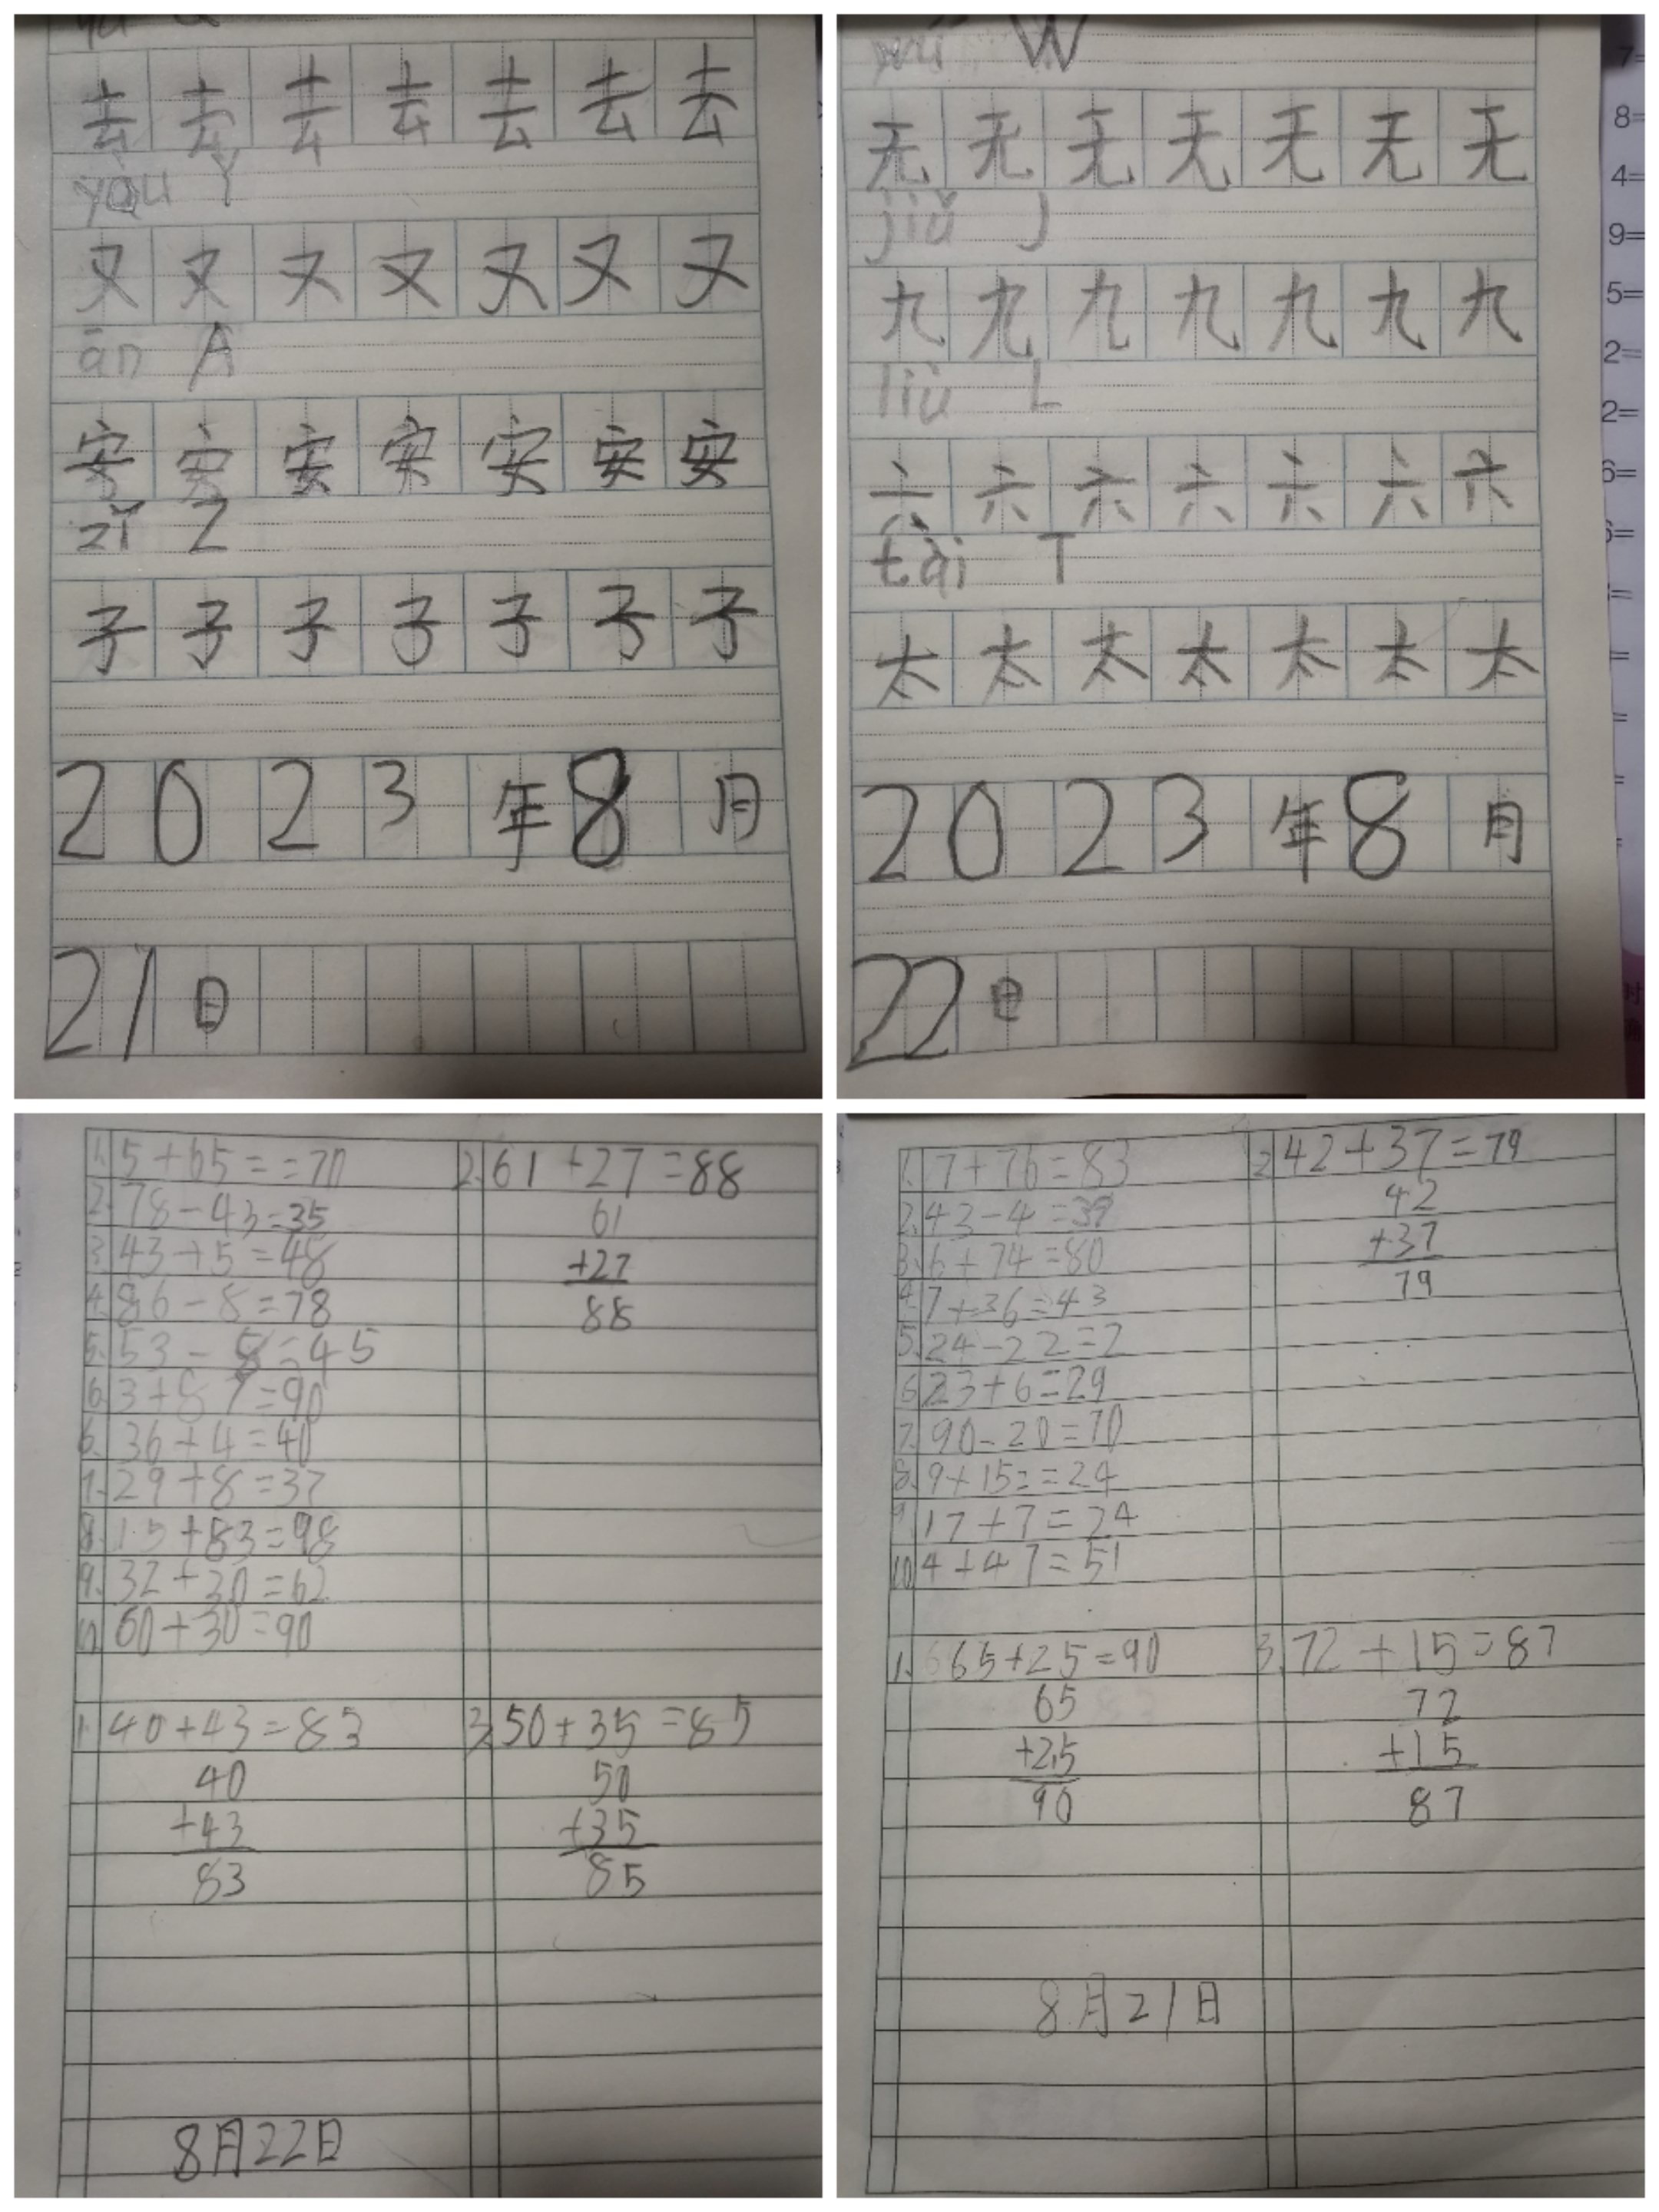 去 去 去 去 去 去 去
yòu Y
又 又 又 又 又 又 又
ān A
安 安 安 安 安 安 安
zǐ Z
子 子 子 子 子 子 子
2 0 2 3 年 8 月
21 日
wú W
无 无 无 无 无 无 无
jiǔ J
九 九 九 九 九 九 九
liù L
六 六 六 六 六 六 六
tài T
太 太 太 太 太 太 太
2 0 2 3 年 8 月
22 日
8=
4=
9=
5=
2=
2=
6=
1. 5+65==70
2. 78-43=35
3. 43+5=48
4. 86-8=78
5. 53-8=45
6. 3+87=90
6. 36+4=40
7. 29+8=37
8. 15+83=98
9. 32+30=62
10. 60+30=90
2. 61+27=88
61
+27
88
1. 40+43=83
40
+43
83
3. 50+35=85
50
+35
85
8月22日
1. 7+76=83
2. 43-4=39
3. 6+74=80
4. 7+36=43
5. 24-22=2
6. 23+6=29
7. 90-20=70
8. 9+15==24
9. 17+7=24
10. 4+47=51
2. 42+37=79
42
+37
79
1. 65+25=90
65
+25
90
3. 72+15=87
72
+15
87
8月21日